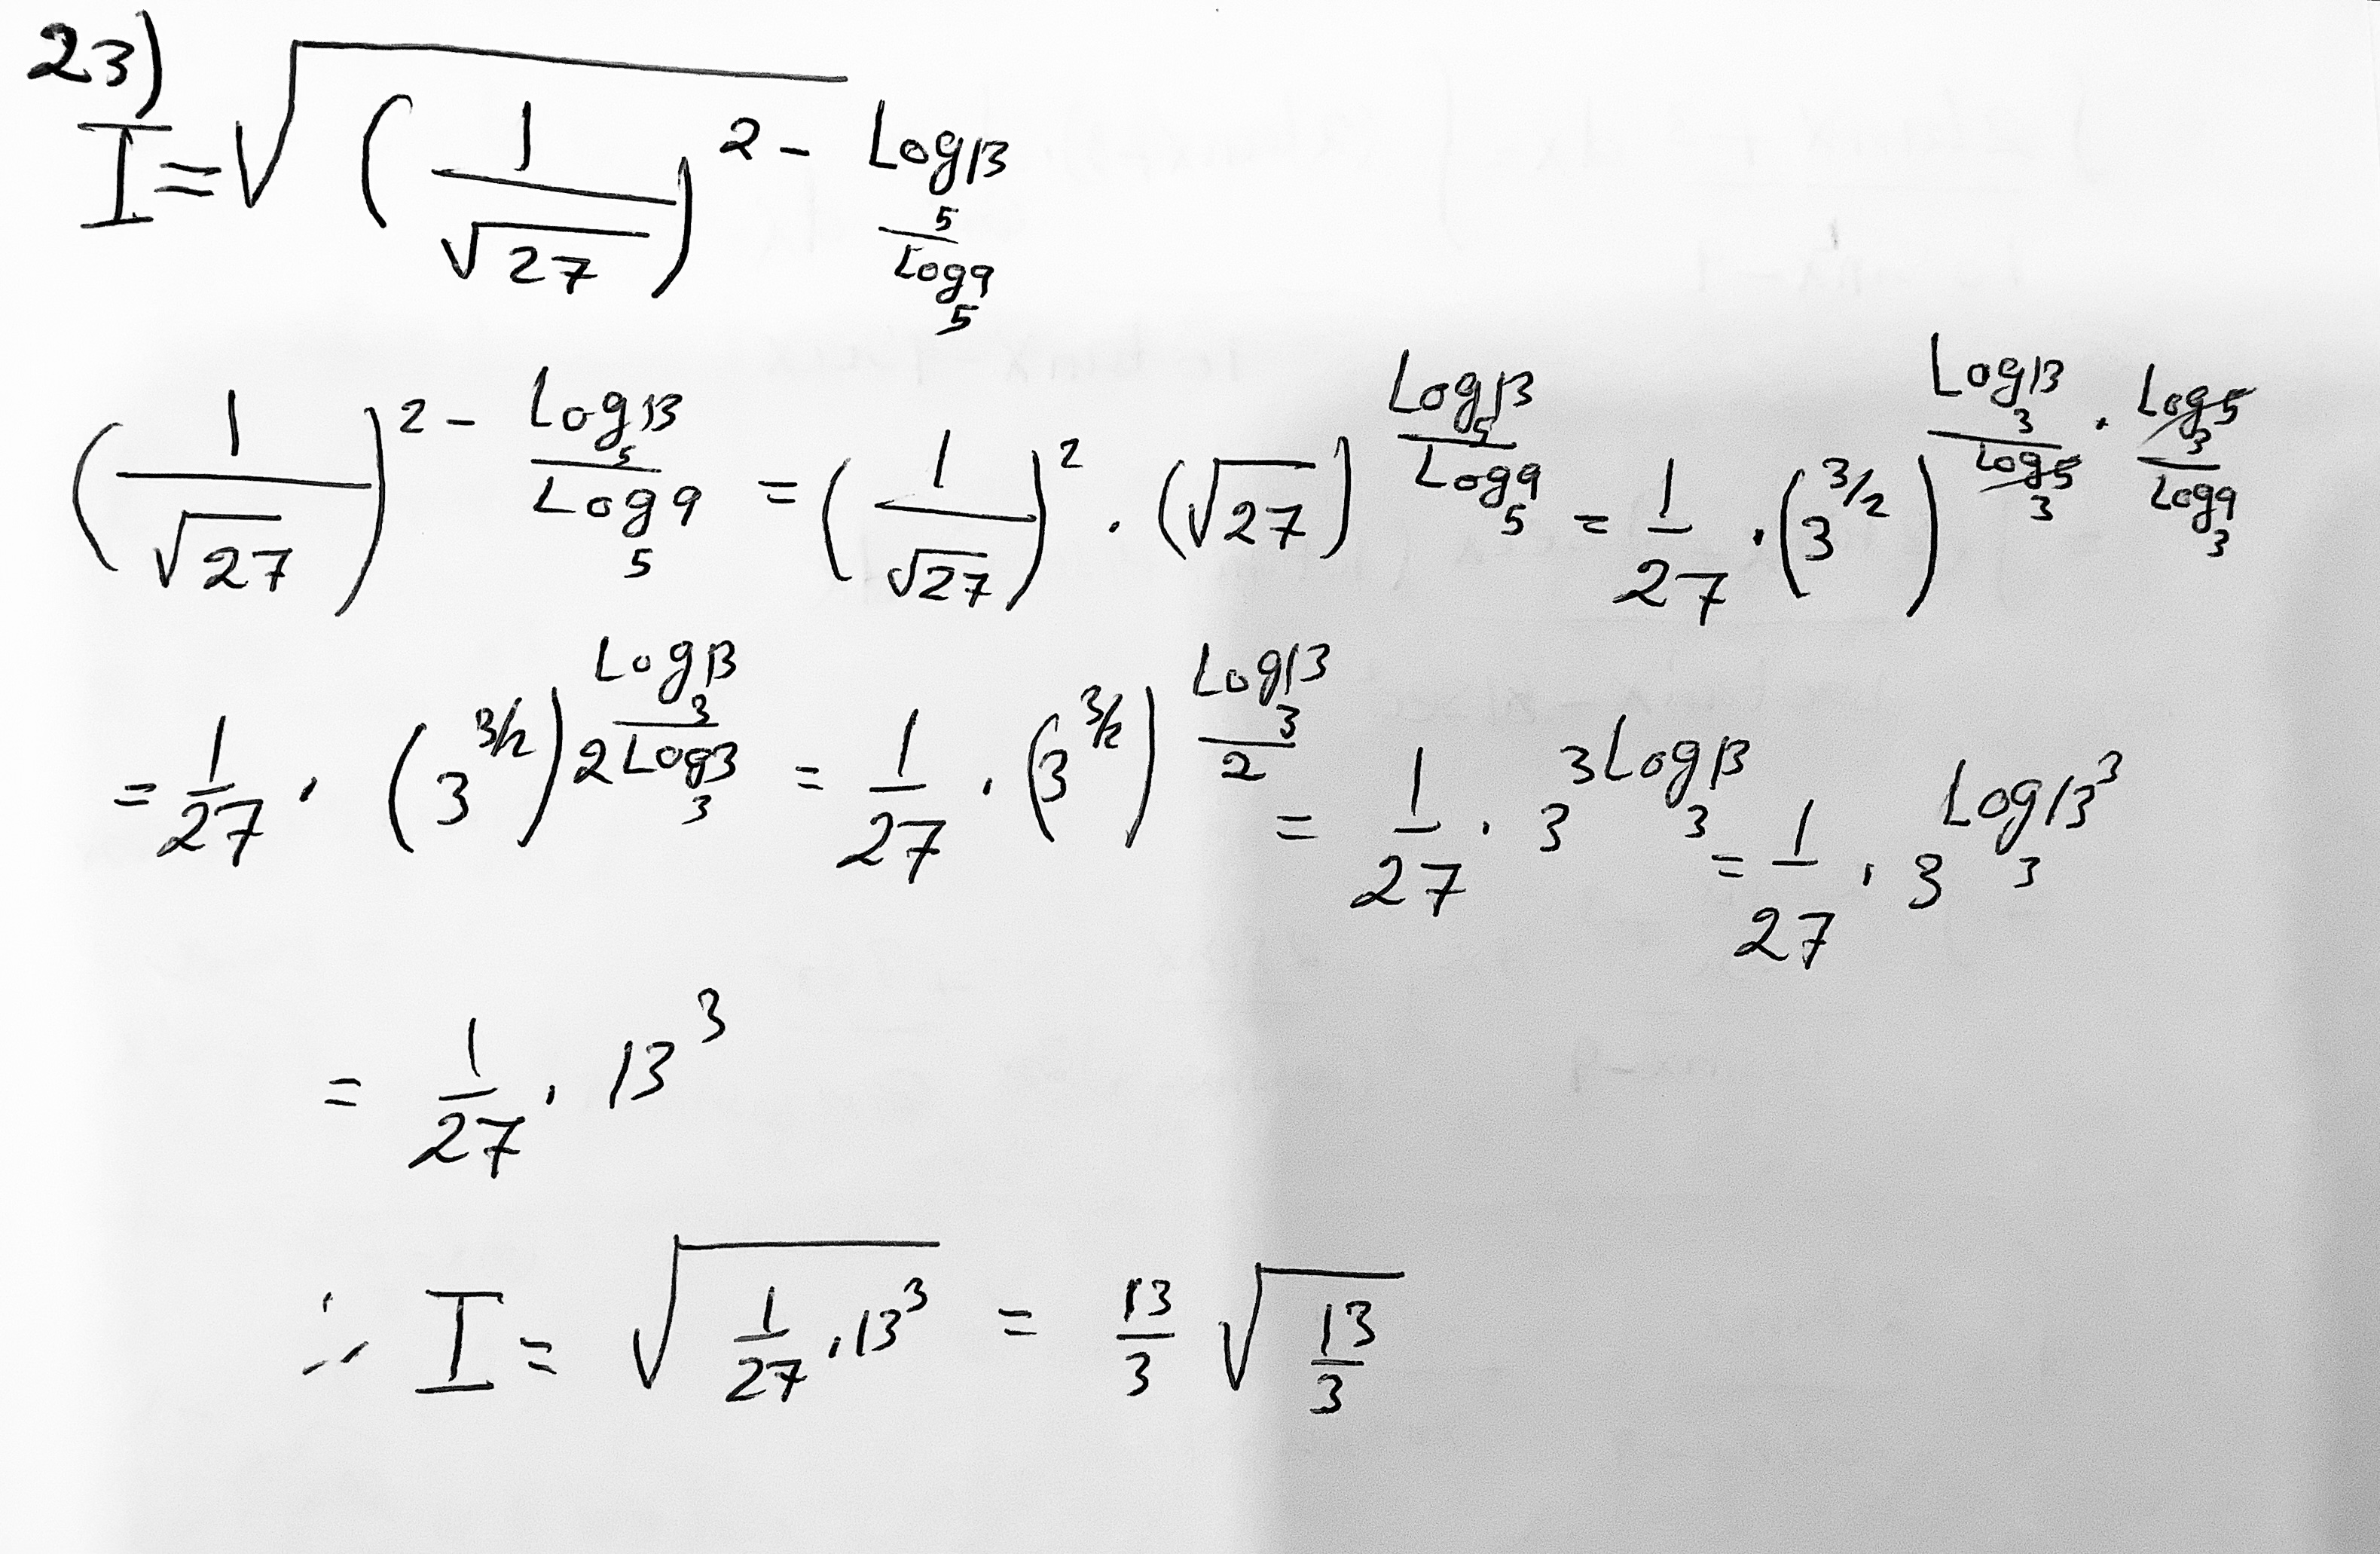 23)
I = √((1/√27)^(2 - Log₅13/Log₅9))
(1/√27)^(2 - Log₅13/Log₅9) = (1/√27)² · (√27)^(Log₅13/Log₅9) = 1/27 · (3^(3/2))^(Log₃13/Log₃5 · Log₃5/Log₃9)
= 1/27 · (3^(3/2))^(Log₃13/2Log₃3) = 1/27 · (3^(3/2))^(Log₃13/2) = 1/27 · 3^(3Log₃13) = 1/27 · 3^(Log₃13³)
= 1/27 · 13³
∴ I = √(1/27 · 13³) = 13/3 √(13/3)